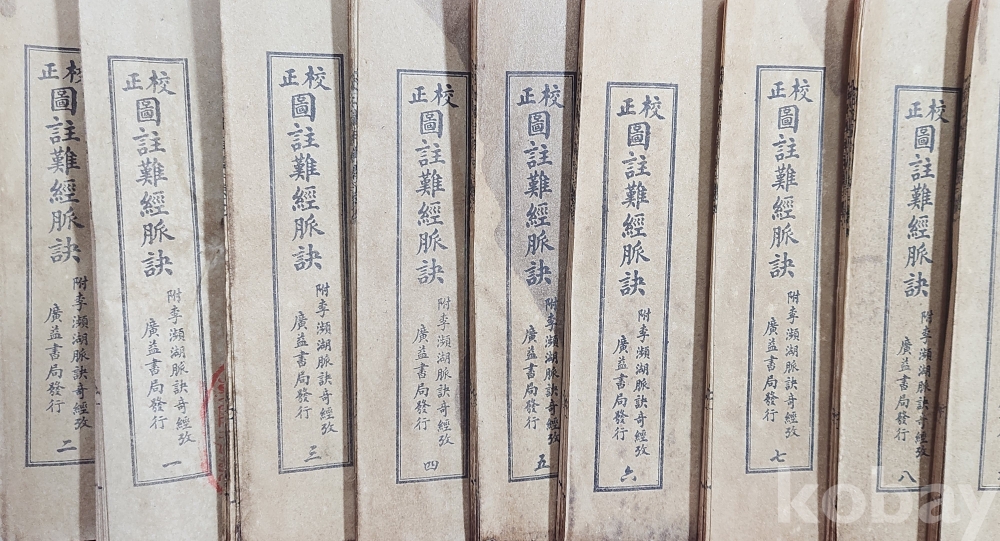 校正
圖註難經脈訣
附李瀕湖脈訣奇經攷
廣益書局發行
二
校正
圖註難經脈訣
附李瀕湖脈訣奇經攷
廣益書局發行
一
校正
圖註難經脈訣
附李瀕湖脈訣奇經攷
廣益書局發行
三
校正
圖註難經脈訣
附李瀕湖脈訣奇經攷
廣益書局發行
四
校正
圖註難經脈訣
附李瀕湖脈訣奇經攷
廣益書局發行
五
校正
圖註難經脈訣
附李瀕湖脈訣奇經攷
廣益書局發行
六
校正
圖註難經脈訣
附李瀕湖脈訣奇經攷
廣益書局發行
七
校正
圖註難經脈訣
附李瀕湖脈訣奇經攷
廣益書局發行
八
kobay